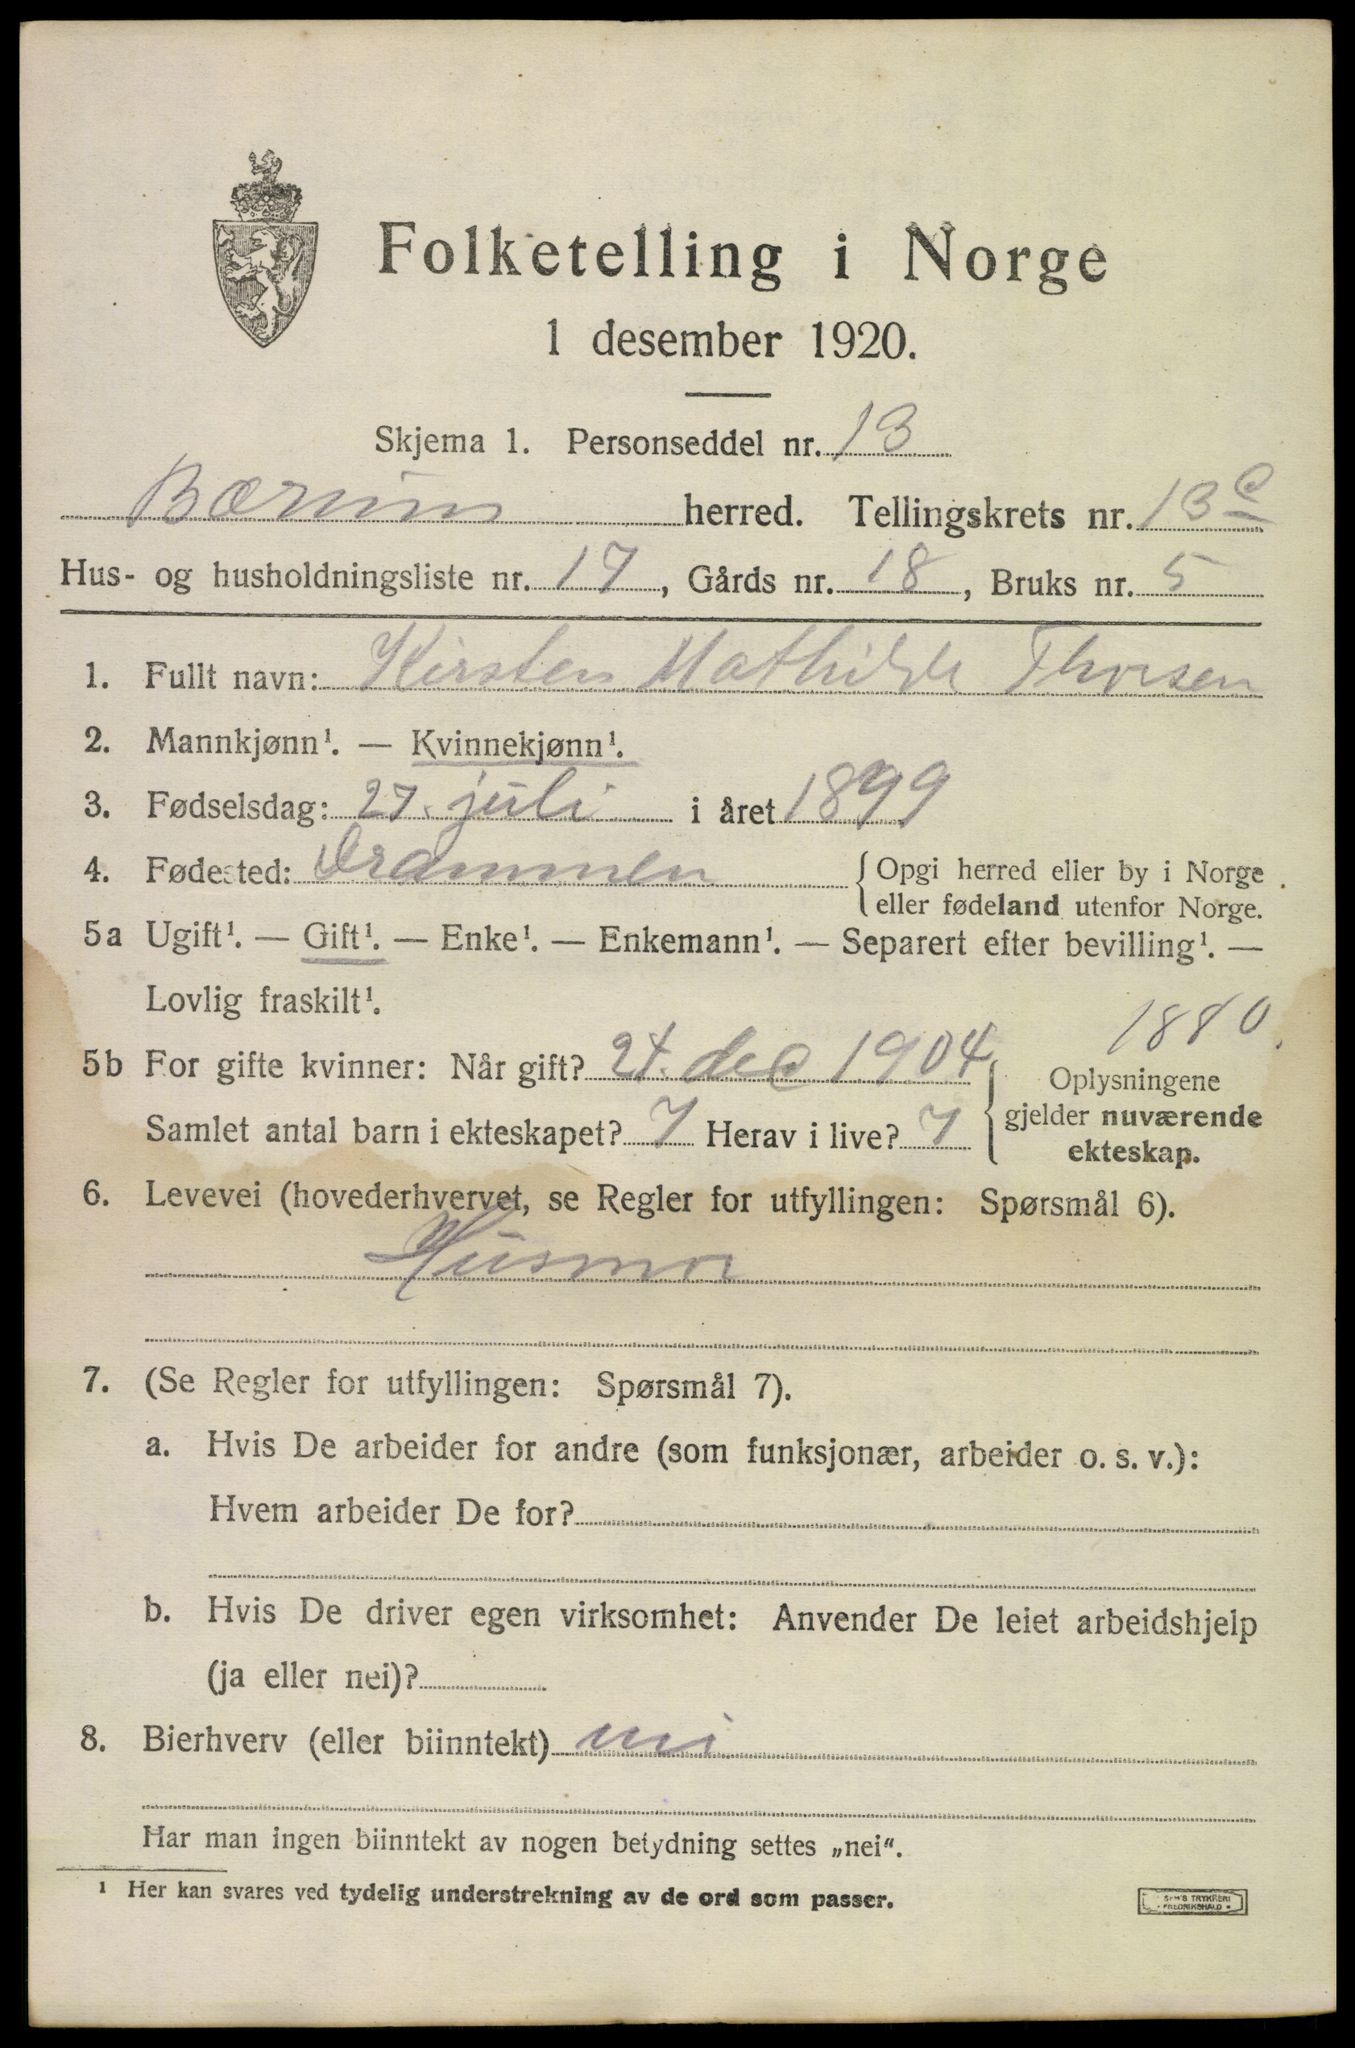 Folketelling i Norge
1 desember 1920.
Skjema 1. Personseddel nr. 13
Bærum herred. Tellingskrets nr. 13c
Hus- og husholdningsliste nr. 17, Gårds nr. 18, Bruks nr. 5
1. Fullt navn: Kirsten Mathilde Thorsen
2. Mannkjønn¹. — Kvinnekjønn¹.
3. Fødselsdag: 27. juli i året 1899
4. Fødested: Drammen {Opgi herred eller by i Norge
eller fødeland utenfor Norge.
5a Ugift¹. — Gift¹. — Enke¹. — Enkemann¹. — Separert efter bevilling¹. —
Lovlig fraskilt¹.
1880.
5b For gifte kvinner: Når gift? 24. dec 1904 { Oplysningene
Samlet antal barn i ekteskapet? 7 Herav i live? 7 gjelder nuværende
ekteskap.
6. Levevei (hovederhvervet, se Regler for utfyllingen: Spørsmål 6).
Husmor
7. (Se Regler for utfyllingen: Spørsmål 7).
a. Hvis De arbeider for andre (som funksjonær, arbeider o. s. v.):
Hvem arbeider De for?
b. Hvis De driver egen virksomhet: Anvender De leiet arbeidshjelp
(ja eller nei)?
8. Bierhverv (eller biinntekt) nei
Har man ingen biinntekt av nogen betydning settes „nei“.
¹ Her kan svares ved tydelig understrekning av de ord som passer.
TRYKKERI
FREDRIKSHALD